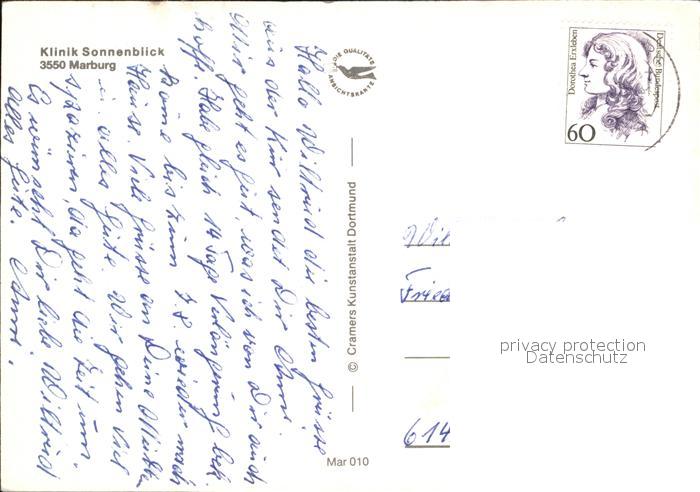 Klinik Sonnenblick
3550 Marburg
DIE QUALITÄTS
ANSICHTSKARTE
Hallo Wiltrud die besten Grüsse
aus der Kur sendet Dir Anni.
Mir geht es gut, was ich von Dir auch
hoffe. Habe gleich 14 Tage Verlängerung bek.
komme bis zum 7.8. wieder nach
Hause. Viele Grüsse an Deine Mutter
u. alles Gute. Wir gehen viel
spazieren, da geht die Zeit um.
Es wünscht Dir liebe Wiltrud
alles Gute. Anni.
© Cramers Kunstanstalt Dortmund
Mar 010
Dorothea Erxleben
Deutsche Bundespost
60
614
privacy protection
Datenschutz